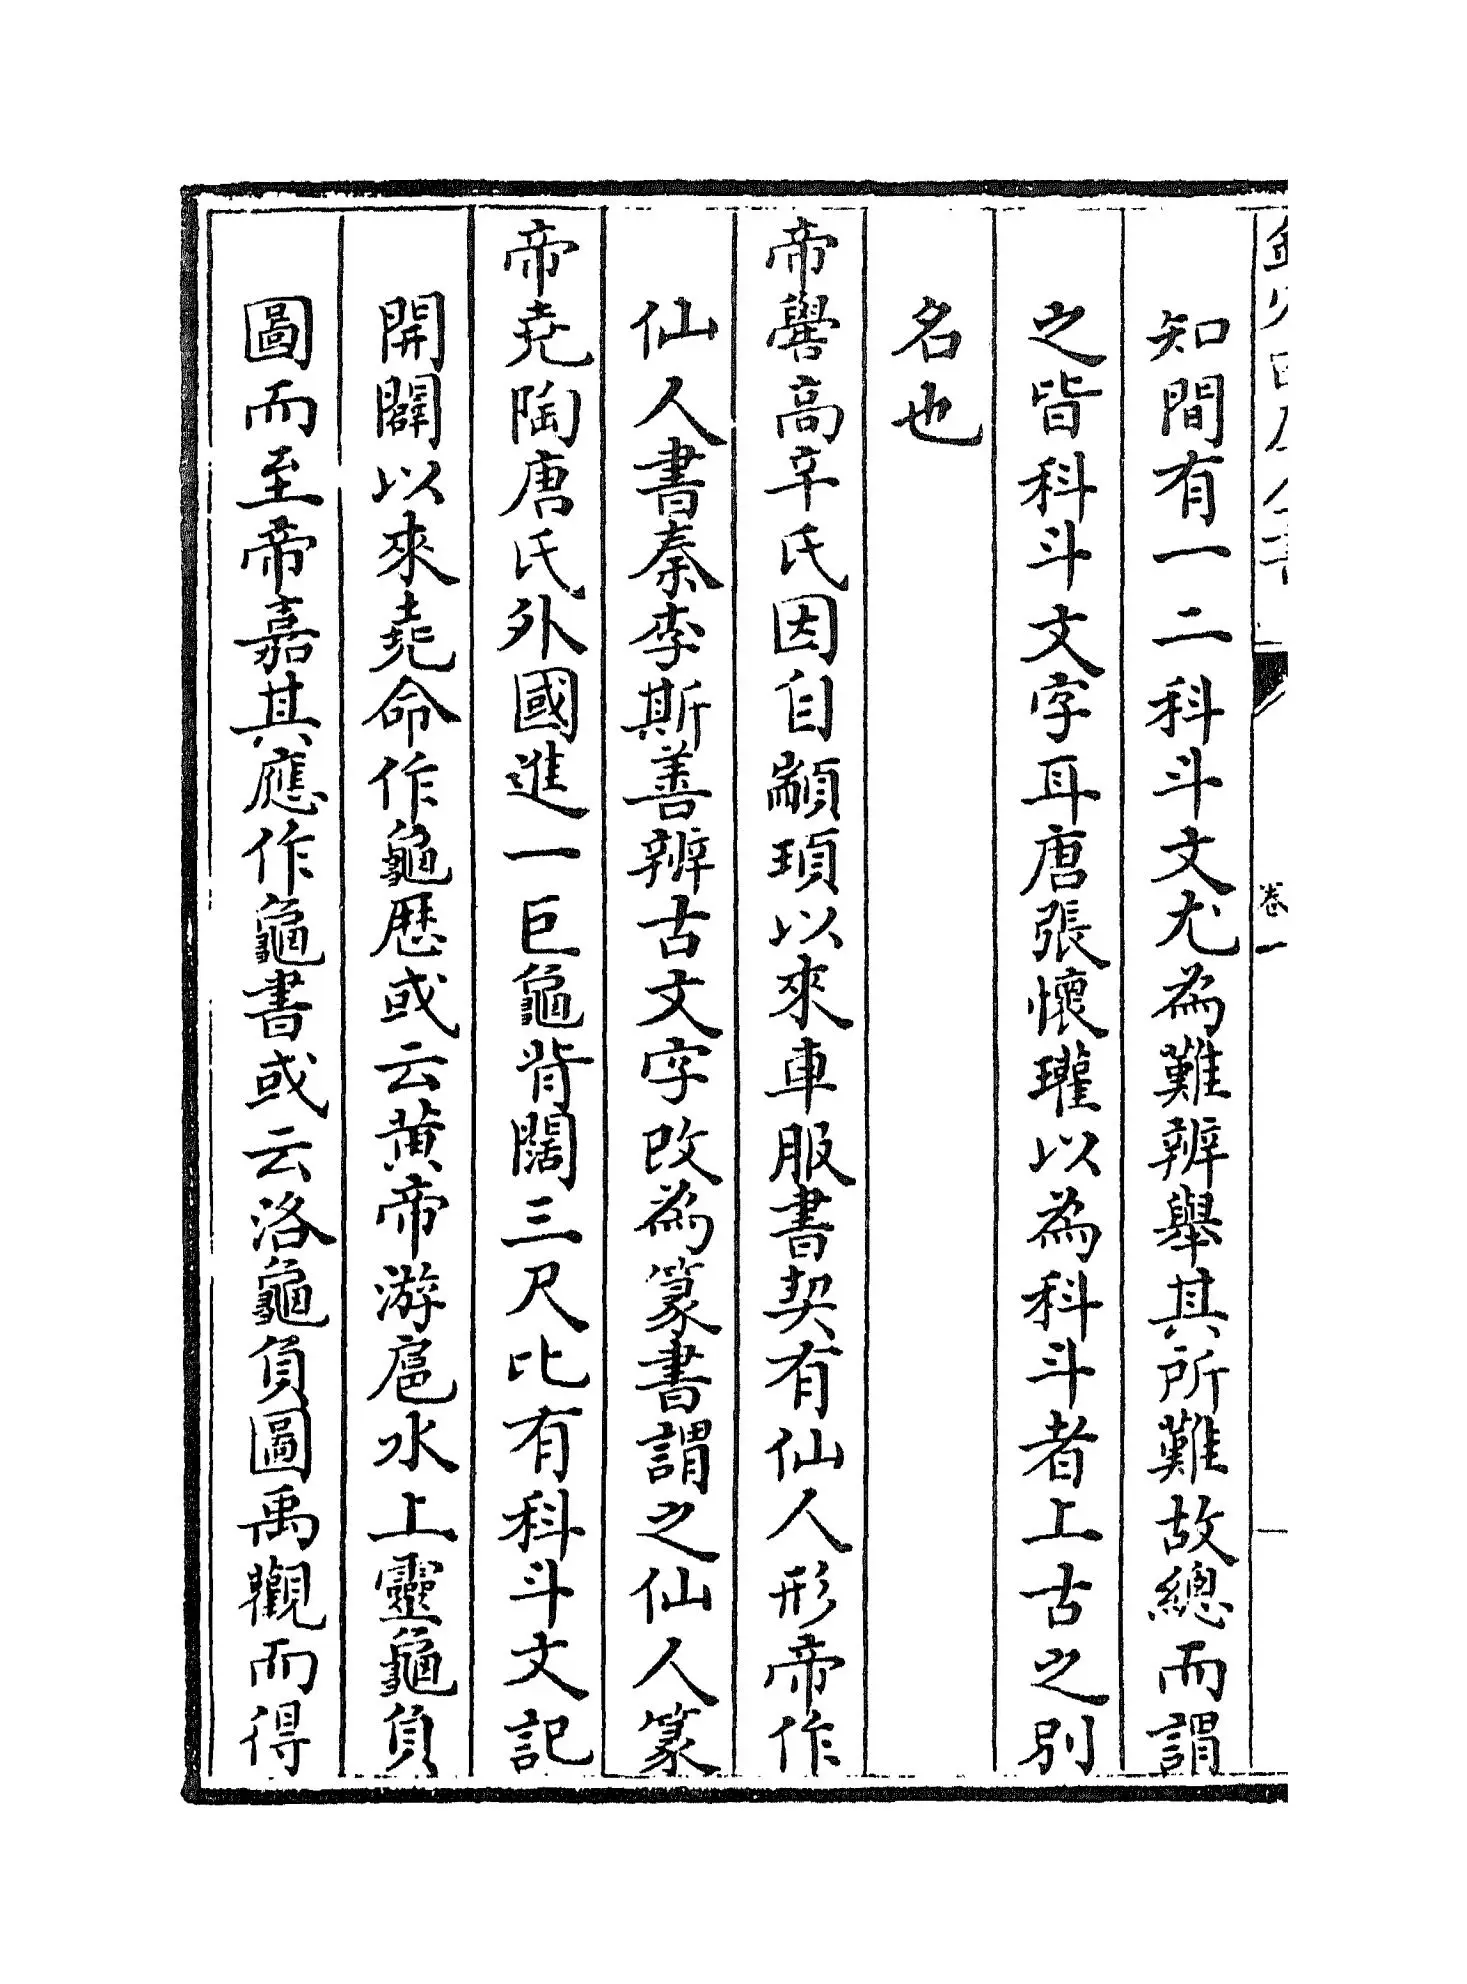 知間有一二科斗文尤為難辨舉其所難故總而謂
之皆科斗文字耳唐張懷瓘以為科斗者上古之別
名也
帝嚳高辛氏因自顓頊以來車服書契有仙人形帝作
仙人書秦李斯善辨古文字改為篆書謂之仙人篆
帝堯陶唐氏外國進一巨龜背闊三尺比有科斗文記
開闢以來堯命作龜厯或云黄帝游扈水上靈龜負
圖而至帝嘉其應作龜書或云洛龜負圖禹觀而得
卷一